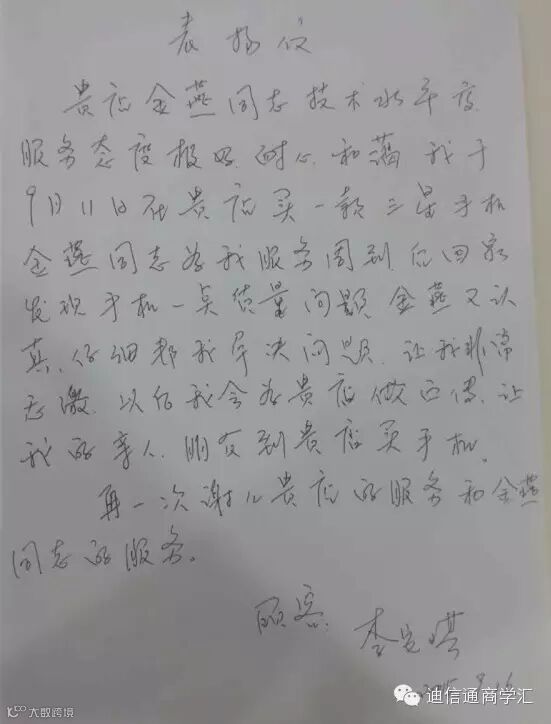 表扬信
贵店金燕同志技术水平高
服务态度极好.耐心.和蔼.我于
9月11日在贵店买一款三星手机
金燕同志为我服务周到.后回家
发现手机一点质量问题.金燕又认
真.仔细帮我解决问题.让我非常
感激.以后我会为贵店做宣传.让
我的亲人.朋友到贵店买手机.
再一次谢谢贵店的服务和金燕
同志的服务。
顾客:
迪信通商学汇
10100 大数跨境